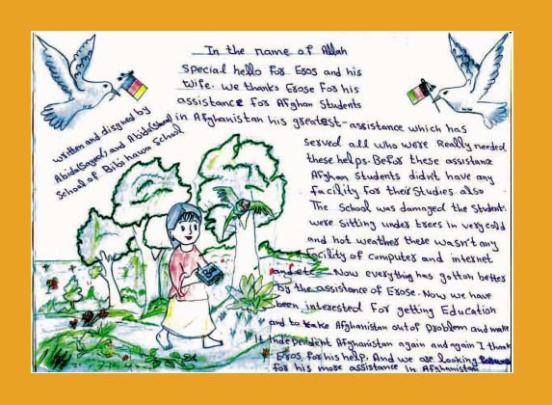 In the name of Allah
special hello For Eros and his
wife. we thanks Erose For his
assistance for Afghan Students
in Afghanistan his greatest-assistance which has
served all who were Really needed
these helps. Befor these assistance
Afghan students didnt have any
facility for their studies also
The School was damaged the Student.
were sitting under trees in very cold
and hot weather there wasn't any
facility of computer and internet
and etc. Now everything has gotton better
by the assistance of Erose. Now we have
been interested For getting Education
and to take Afghanistan out of Problem and make
independent Afghanistan again and again I thank
Eros for his help. And we are looking
for his more assistance in Afghanistan
written and disgned by
Abida(Sayeed) and Abida
School of Bibi hawa School